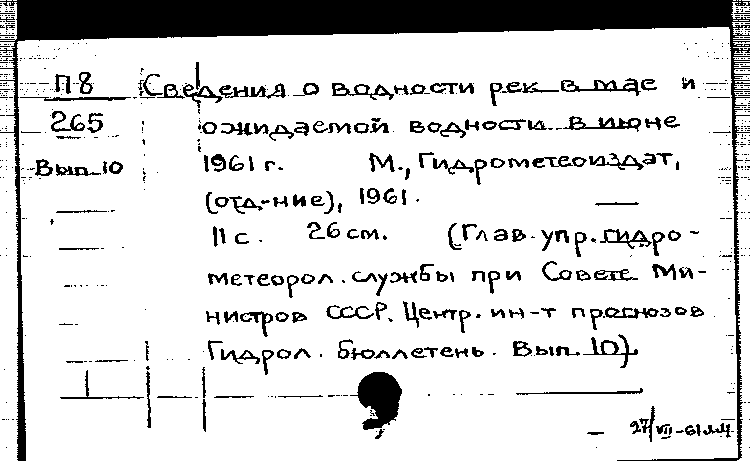 П8 Сведения о водности рек в мае и
265 ожидаемой водности в июне
Вып.10 1961 г. М., Гидрометеоиздат,
(отд-ние), 1961.
11 с. 26 см. (Глав. упр. гидро-
метеорол. службы при Совете Ми-
нистров СССР. Центр. ин-т прогнозов
Гидрол. бюллетень. Вып. 10).
27/VII-61